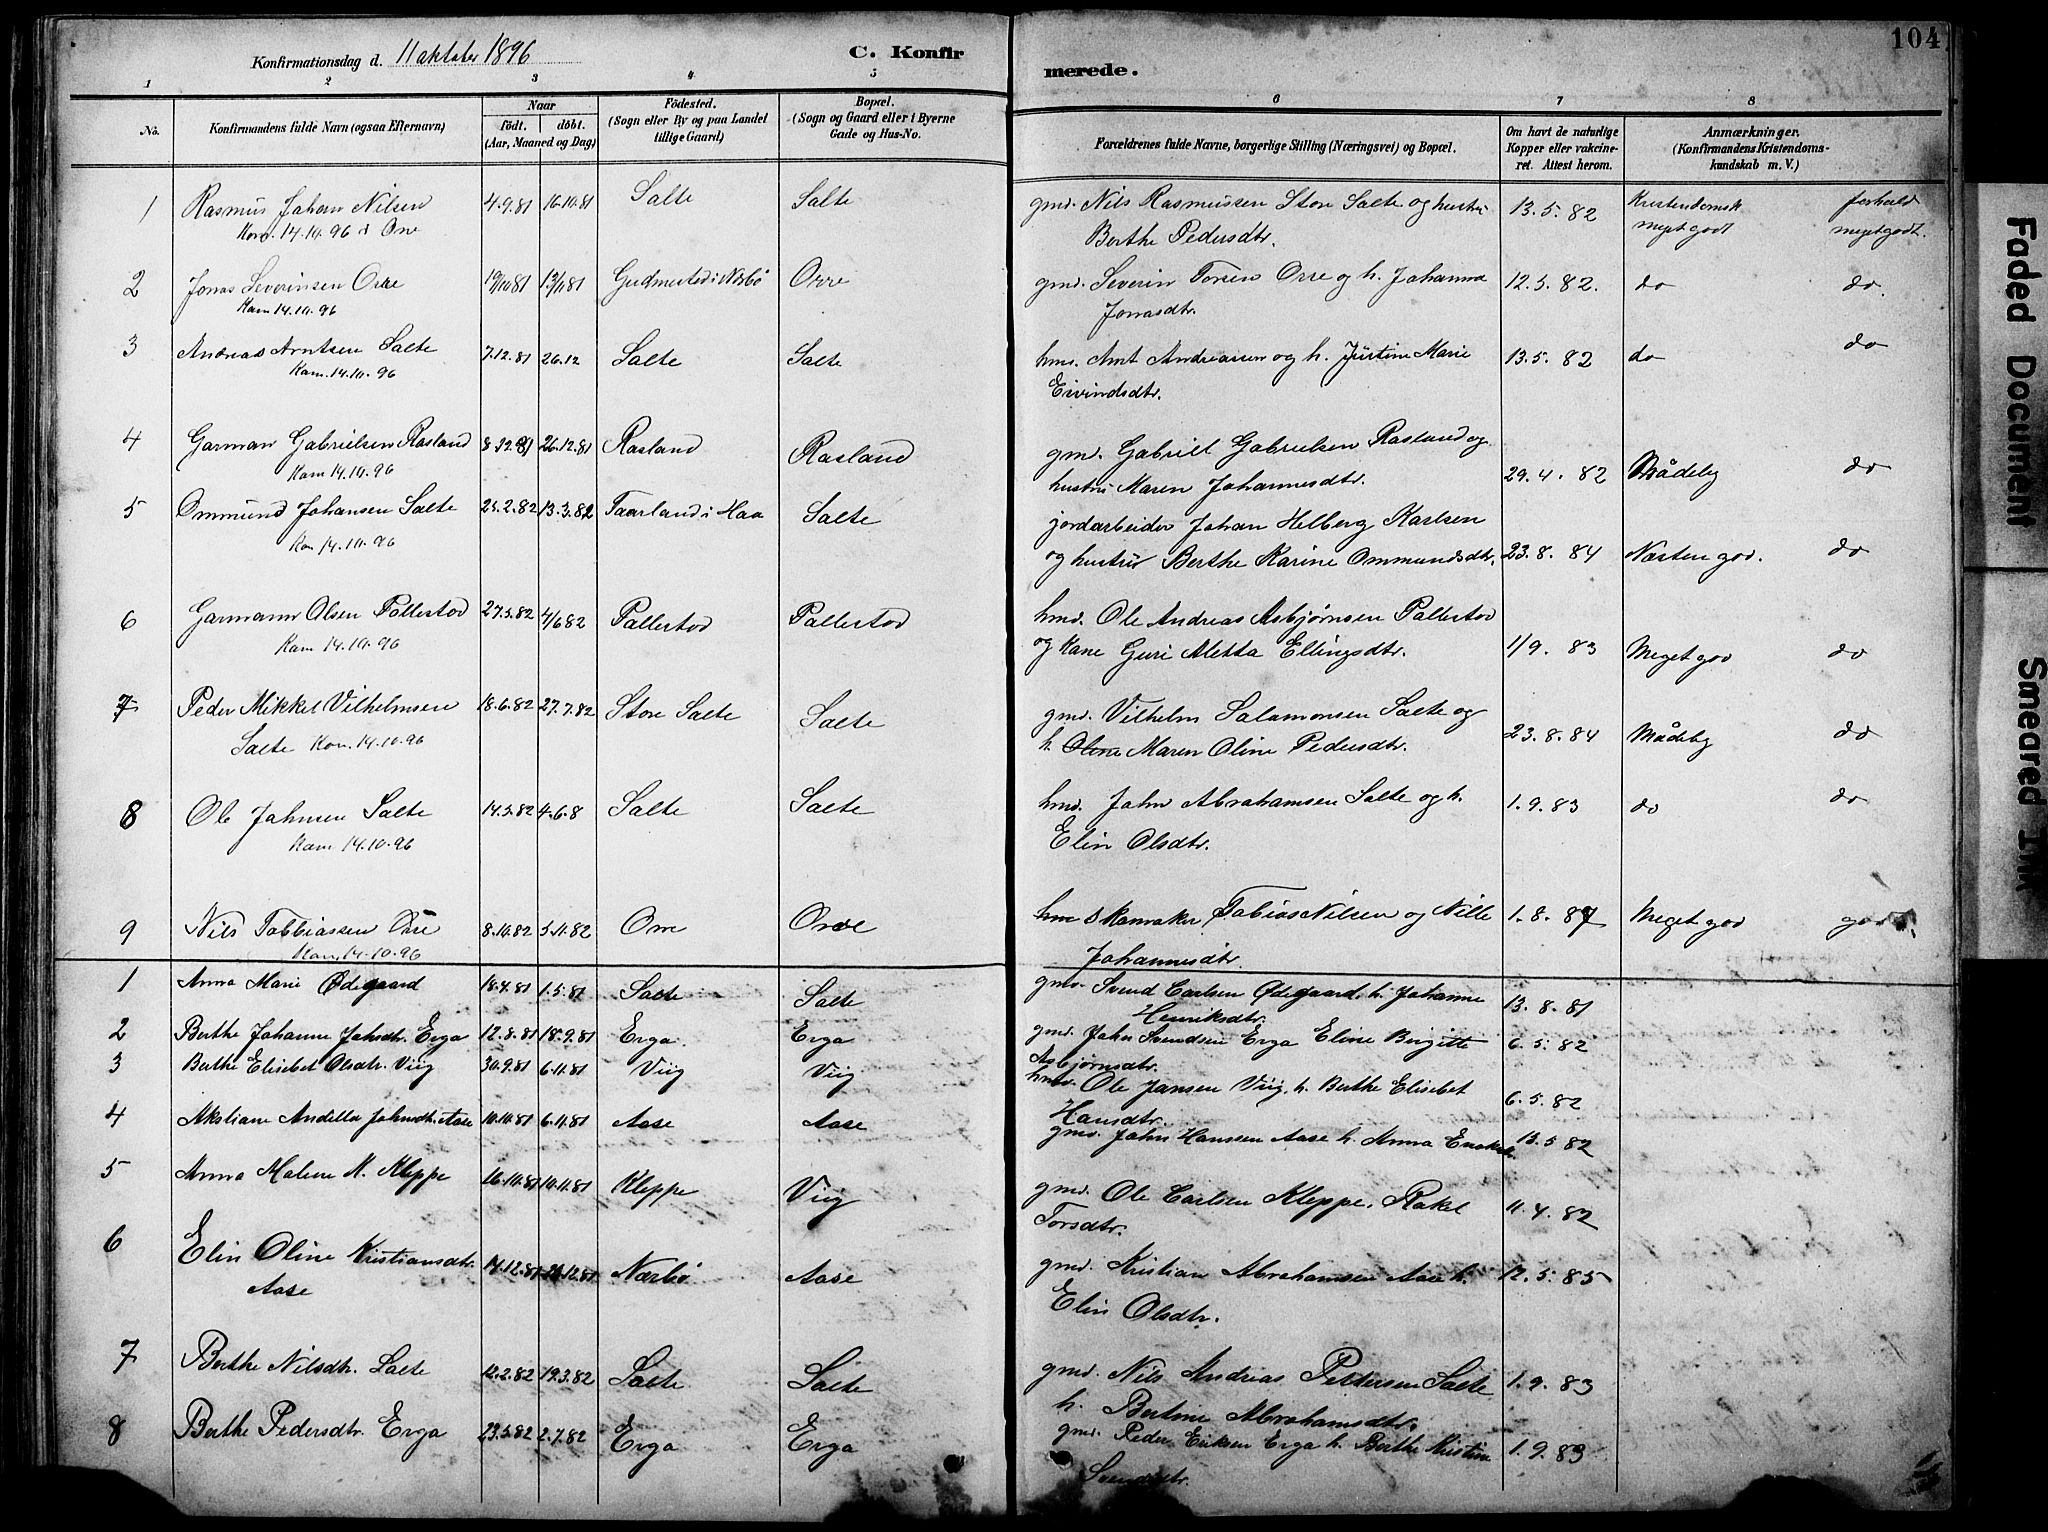 104
Konfirmationsdag d. 11 oktober 1896
C. Konfirmerede.
1 2 3 4 5 6 7 8
No.
Konfirmandens fulde Navn (ogsaa Efternavn)
Naar
födt. döbt.
(Aar, Maaned og Dag)
Födested.
(Sogn eller By og paa Landet
tillige Gaard)
Bopæl.
(Sogn og Gaard eller i Byerne
Gade og Hus-No.
Forældrenes fulde Navne, borgerlige Stilling (Næringsvei) og Bopæl.
Om havt de naturlige
Kopper eller vakcine-
ret. Attest herom.
Anmærkninger.
(Konfirmandens Kristendoms-
kundskab m. V.)
1 Rasmus Johan Nilsen 4.9.81 16.10.81 Salte Salte gmd. Nils Rasmussen Store Salte og hustru 13.5.82 Kristendomsk forhold
Kom. 14.10.96 Berthe Pedersdtr. meget godt meget godt.
2 Jonas Severinsen Orre 19/10 81 13/11 81 Gudmestad i Nærbö Orre gmd. Severin Torsen Orre og h. Johanna 12.5.82. do do.
Kom 14.10.96 Jonasdtr.
3 Andreas Arntsen Salte 7.12.81 26.12 Salte Salte hmd. Arnt Andreassen og h. Justine Marie 13.5.82 do do
Kom. 14.10.96 Eivindsdtr.
4 Garman Gabrielsen Rasland 8.12.81 26.12.81 Rasland Rasland gmd. Gabriel Gabrielsen Rasland og
Kom 14.10.96 hustru Maren Johannesdtr. 29.4.82 Mådelig do
5 Ommund Johansen Salte 25.2.82 13.3.82 Taarland i Haa Salte jordarbeider Johan Helberg Karlsen
Kom 14.10.96 og hustru Berthe Karine Ommundsdtr. 23.8.84 Næsten god. do
6 Garmann Olsen Pallestad 27.5.82 4/6 82 Pallestad Pallestad hmd. Ole Andreas Asbjørnsen Pallestad
Kom 14.10.96 og Kone Guri Aletta Ellingsdtr. 1/9. 83 Meget god do
7 Peder Mikkel Vilhelmsen 18.6.82 27.7.82 Store Salte Salte gmd. Vilhelm Salamonsen Salte og
Salte Kom. 14.10.96 h. Oline Maren Oline Pedersdtr. 23.8.84 Mådelig do
8 Ole Johnsen Salte 14.5.82 4.6.8 Salte Salte hmd. John Abrahamsen Salte og h. 1.9.83 do do
Kom 14.10.96 Elin Olsdtr.
9 Nils Tobbiassen Orre 8.10.82 5.11.82 Orre Orre hm Skomaker Tobias Nilsen og Nille 1.8.87 Meget god god
Kom 14.10.96 Johannesdtr.
1 Anna Marie Ødegaard 18.4.81 1.5.81 Salte Salte gmd. Svend Carlsen Ødegaard, h. Johanne 13.8.81
Henriksdtr.
2 Berthe Johanne Johsdtr. Erga 12.8.81 18.9.81 Erga Erga gmd. John Svendsen Erga Eline Birgitte 6.5.82
Asbjørnsdtr.
3 Berthe Elisebet Olsdtr. Viig 30.9.81 6.11.81 Viig Viig hmd. Ole Jansen Viig. h. Berthe Elisebet 6.5.82
Hansdtr.
4 Akstiane Andilla Johnsdtr. Aase 10.10.81 6.11.81 Aase Aase gmd. John Hanssen Aase h. Anna 13.5.82
5 Anna Malene N. Kleppe 16.10.81 10.11.81 Kleppe Viig gmd. Ole Carlsen Kleppe. Rakel 11.4.82
Torsdtr.
6 Elin Oline Kristiansdtr. 14.12.81 26.12.81 Nærbö Aase gmd. Kristian Abrahamsen Aase h. 12.5.85
Aase Elin Olsdtr.
7 Berthe Nilsdtr. Salte 12.2.82 19.3.82 Salte Salte gmd. Nils Andreas Pedersen Salte 1.9.83
h. Bertine Abrahamsdtr.
8 Berthe Pedersdtr. Erga 23.5.82 2.7.82 Erga Erga gmd. Peder Eriksen Erga h. Berthe Kristine 1.9.83
Svendsdtr.
Faded Document
Smeared Ink